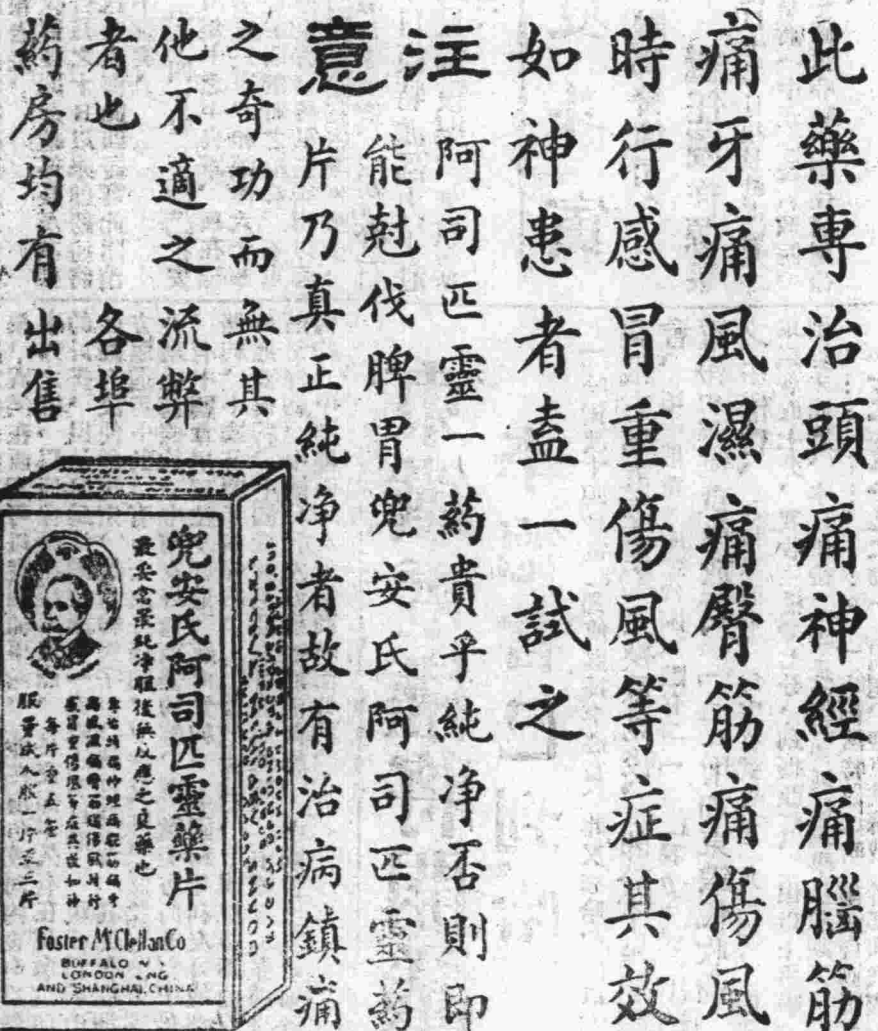 此藥專治頭痛神經痛腦筋
痛牙痛風濕痛臀筋痛傷風
時行感冒重傷風等症其效
如神患者盍一試之
注意
阿司匹靈一葯貴乎純净否則即
能尅伐脾胃兜安氏阿司匹靈葯
片乃真正純净者故有治病鎮痛
之奇功而無其
他不適之流弊
者也 各埠
葯房均有出售
兜安氏阿司匹靈藥片
最妥當最純净服後無反應之良藥也
每片重五厘
服量成人服一片至三片
Foster McClellan Co
BUFFALO N.
LONDON ENG
AND SHANGHAI, CHINA